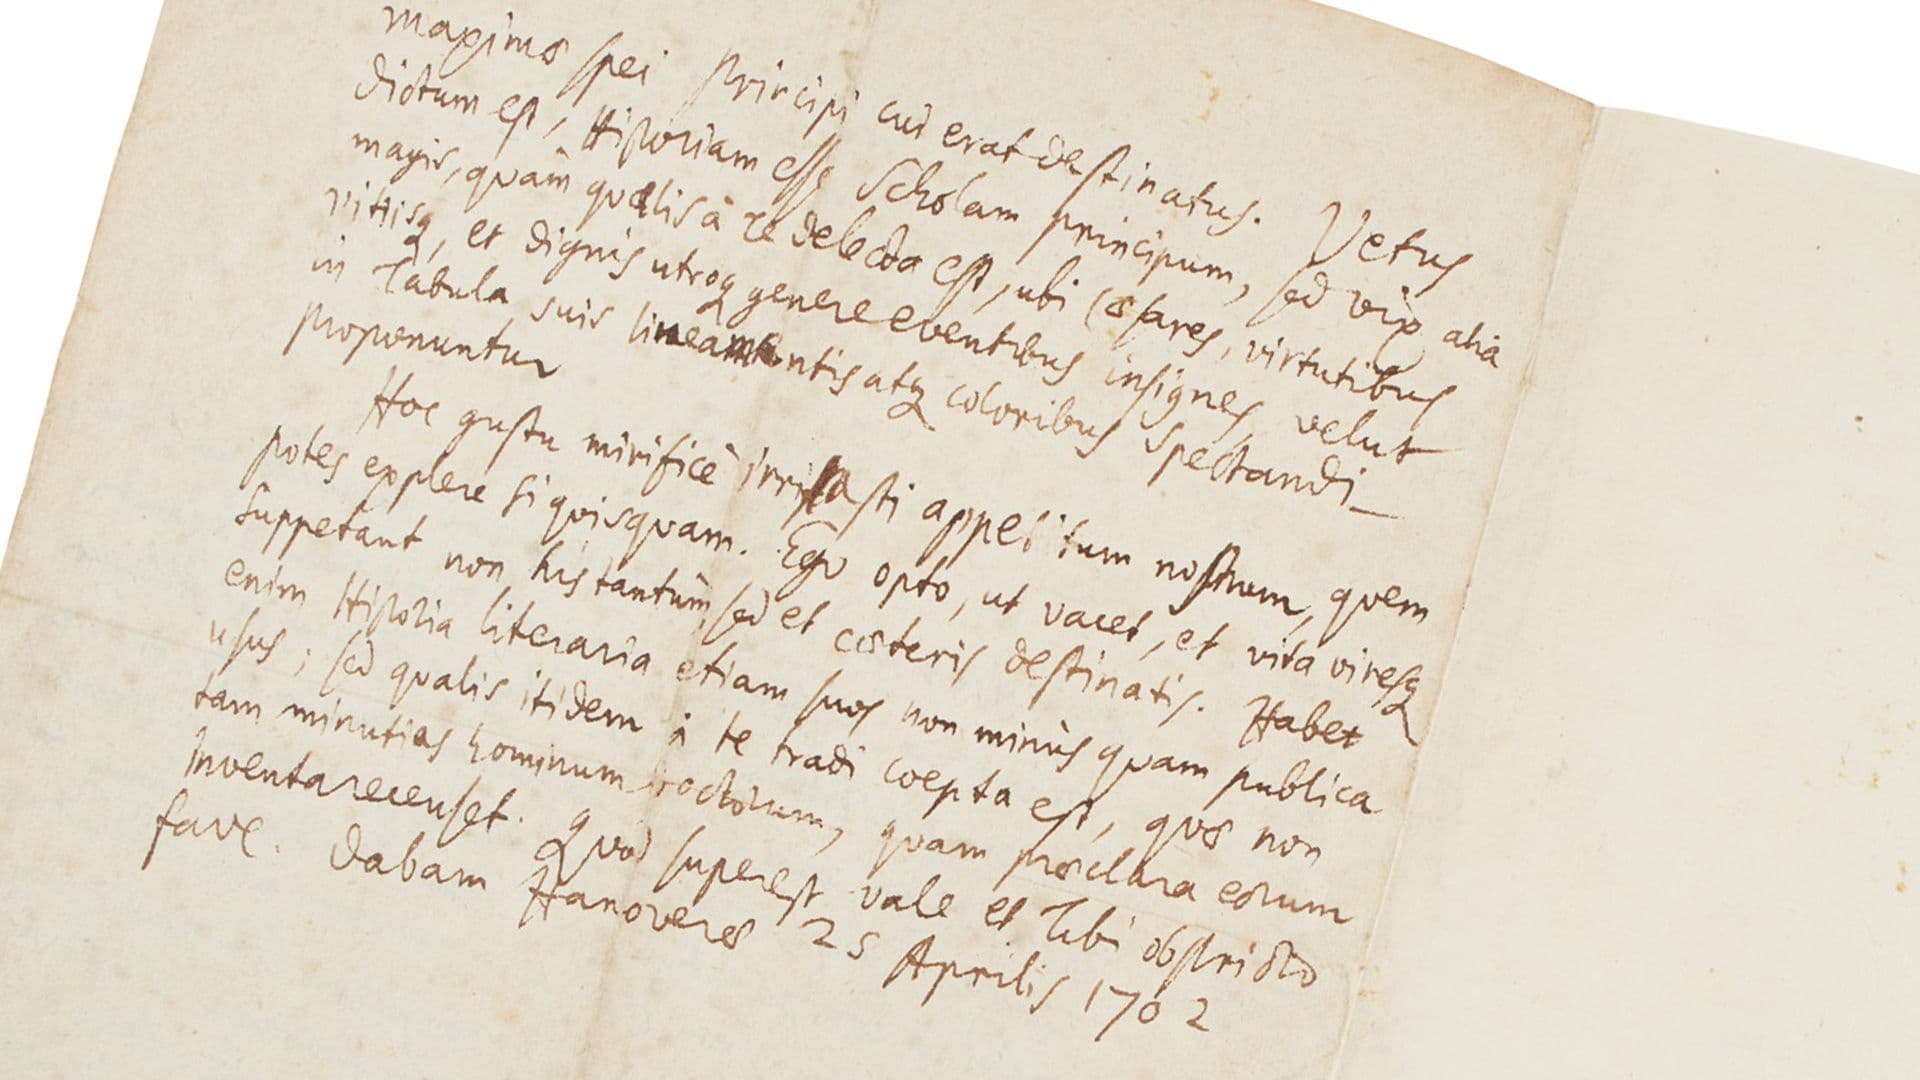 maximæ spei Principi cui erat destinatus. Vetus
dictum est, Historiam esse Scholam principum, sed vix aliâ
magis, quàm qualis à Te delecta est, ubi Cæsares, virtutibus
vitiisq, et dignis utroq genere eventibus insignes, velut
in Tabula suis lineamentis atq coloribus spectandi
proponuntur
Hoc gustu mirificè irritasti appetitum nostrum, quem
potes explere si quisquam. Ego opto, ut vacet, et vita viresq
suppetant non his tantùm, sed et cæteris destinatis. Habet
enim Historia literaria etiam suos non minùs quam publica
usus; sed qualis itidem à te tradi coepta est, quæ non
tam minutias hominum doctorum, quam præclara eorum
inventa recenset. Quod superest vale et Tibi obstricto
fave. Dabam Hanoveræ 25 Aprilis 1702